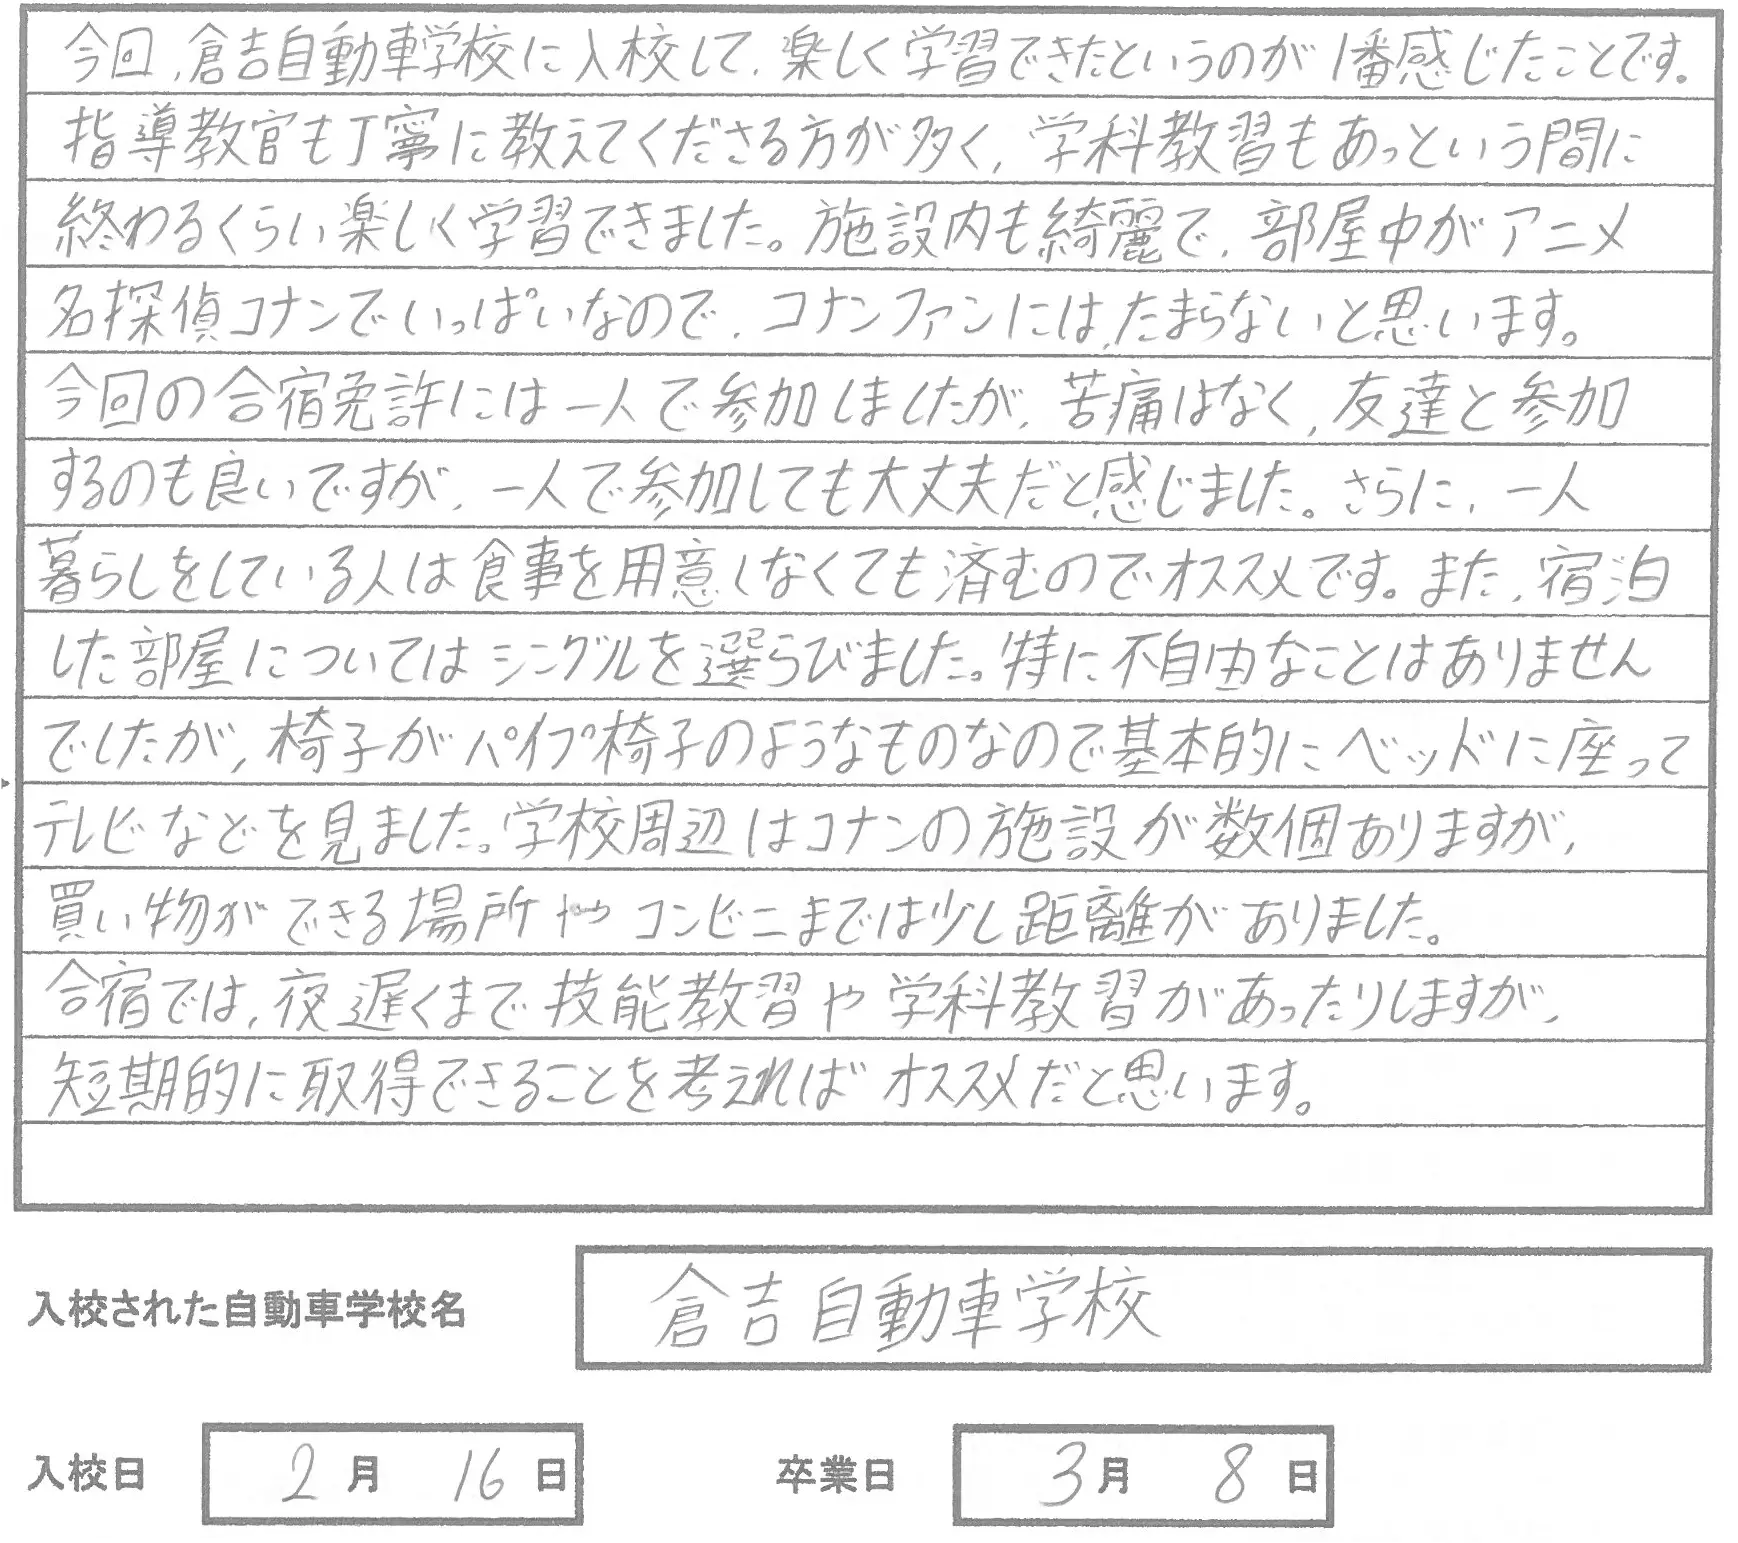 今回、倉吉自動車学校に入校して、楽しく学習できたというのが1番感じたことです。
指導教官も丁寧に教えてくださる方が多く、学科教習もあっという間に
終わるくらい楽しく学習できました。施設内も綺麗で、部屋中がアニメ
名探偵コナンでいっぱいなので、コナンファンには、たまらないと思います。
今回の合宿免許には一人で参加しましたが、苦痛はなく、友達と参加
するのも良いですが、一人で参加しても大丈夫だと感じました。さらに、一人
暮らしをしている人は食事を用意しなくても済むのでオススメです。また、宿泊
した部屋についてはシングルを選らびました。特に不自由なことはありません
でしたが、椅子がパイプ椅子のようなものなので基本的にベッドに座って
テレビなどを見ました。学校周辺はコナンの施設が数個ありますが、
買い物ができる場所やコンビニまでは少し距離がありました。
合宿では、夜遅くまで技能教習や学科教習があったりしますが、
短期的に取得できることを考えればオススメだと思います。
入校された自動車学校名 倉吉自動車学校
入校日 2月 16日 卒業日 3月 8日